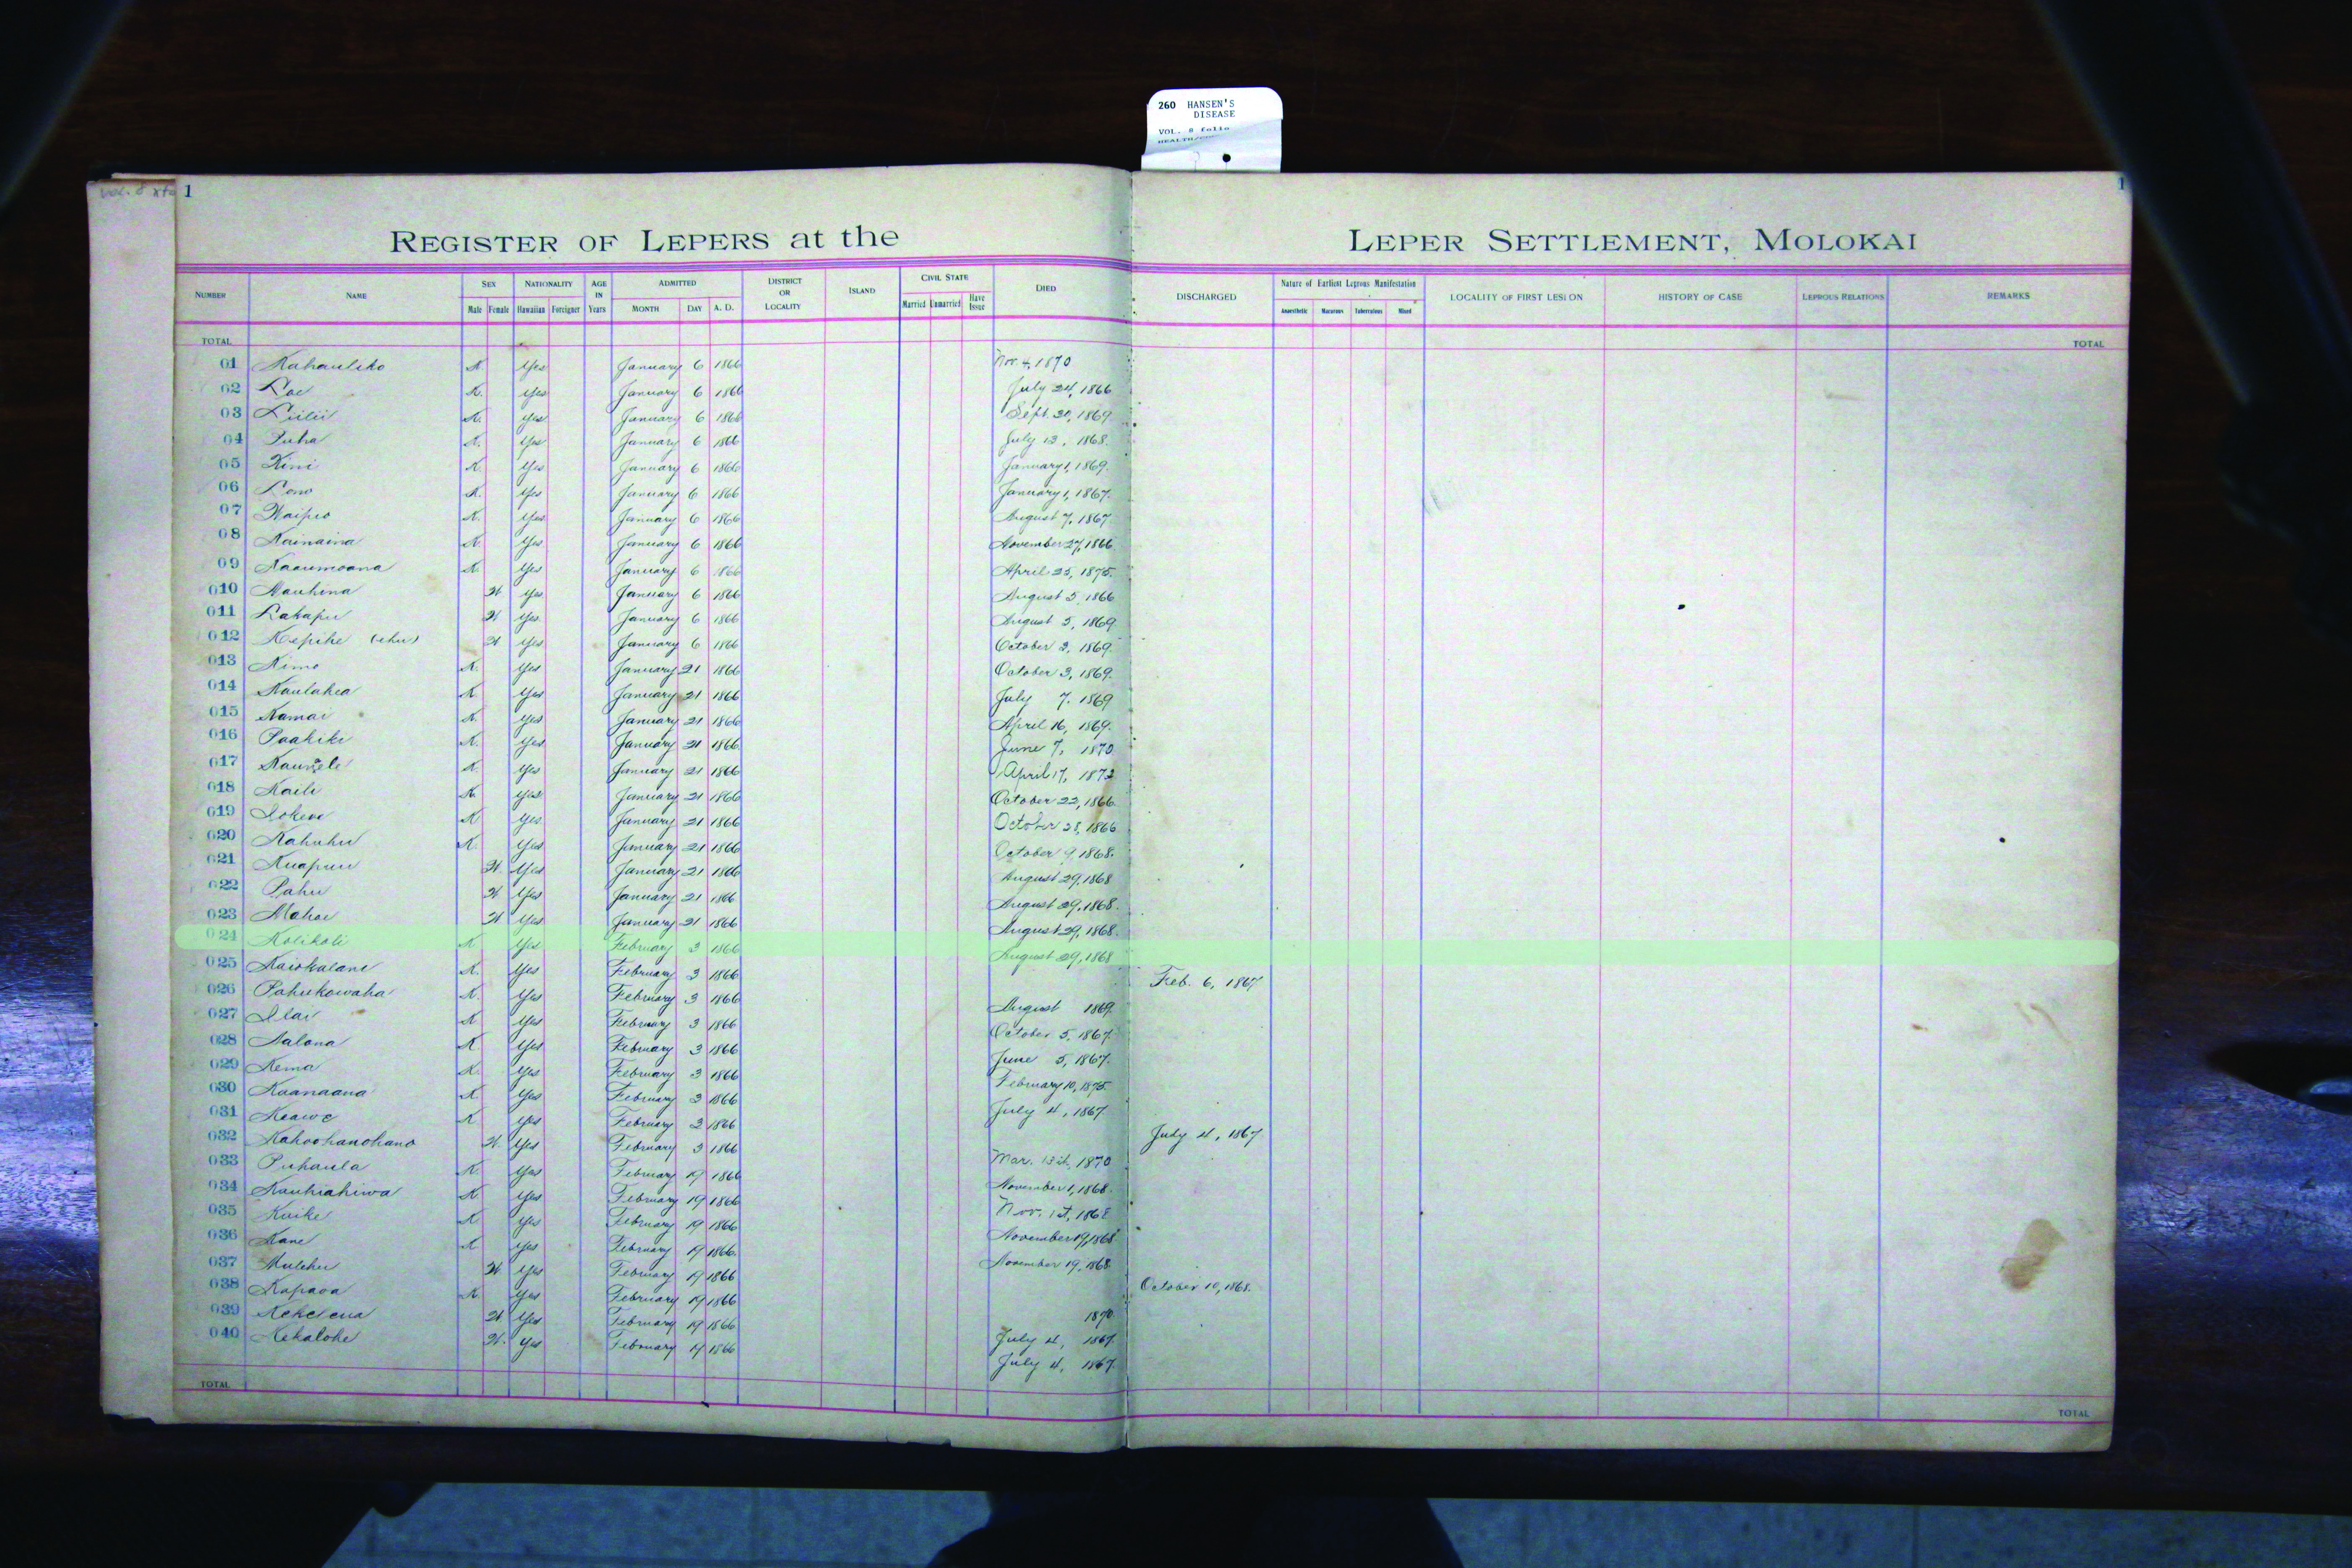 260 HANSEN'S
DISEASE
VOL. 8 folio
1 1
REGISTER OF LEPERS at the LEPER SETTLEMENT, MOLOKAI
NUMBER NAME SEX NATIONALITY AGE IN Years ADMITTED DISTRICT OR LOCALITY ISLAND CIVIL STATE DIED DISCHARGED Nature of Earliest Leprous Manifestation LOCALITY OF FIRST LESION HISTORY OF CASE LEPROUS RELATIONS REMARKS
Male Female Hawaiian Foreigner MONTH DAY A. D. Married Unmarried Have Issue Anaesthetic Macurous Tuberculous Mixed
TOTAL TOTAL
01 Kahauliko K Yes January 6 1866 Nov. 4, 1870
02 Loe K. Yes January 6 1866 July 24, 1866
03 Liilii K. Yes January 6 1866 Sept. 20, 1869
04 Puha K. Yes January 6 1866 July 13, 1868.
05 Kini K. Yes January 6 1866 January 1, 1869.
06 Lono K. Yes January 6 1866 January 1, 1867.
07 Waipio K. Yes January 6 1866 August 7, 1867
08 Kainaina K. Yes January 6 1866 November 27, 1866
09 Kaaumoana K. Yes January 6 1866 April 25, 1875.
010 Nauhina W Yes January 6 1866 August 5, 1866
011 Lakapu W Yes January 6 1866 August 5, 1869
012 Kepihe (ehu) W Yes January 6 1866 October 3, 1869.
013 Kimo K. Yes January 21 1866 October 3, 1869.
014 Kaulahea K Yes January 21 1866 July 7, 1869
015 Kamai K. Yes January 21 1866 April 16, 1869.
016 Paakiki K. Yes January 21 1866 June 7, 1870
017 Kaumele K. Yes January 21 1866 April 17, 1872
018 Kaili K. Yes January 21 1866 October 22, 1866
019 Iokewe K Yes January 21 1866 October 28, 1866
020 Kahuhu K. Yes January 21 1866 October 9, 1868.
021 Kuapuu W. Yes January 21 1866 August 29, 1868
022 Pahu W Yes January 21 1866 August 29, 1868.
023 Mahoe W Yes January 21 1866 August 29, 1868.
024 Kolikoli K Yes February 3 1866 August 29, 1868
025 Kaiokalani K. Yes February 3 1866 Feb. 6, 1867
026 Pahukowaha K. Yes February 3 1866 August 1869
027 Ilai K Yes February 3 1866 October 5, 1867
028 Aalona K Yes February 3 1866 June 5, 1867.
029 Kema K. Yes February 3 1866 February 10, 1875
030 Kaanaana K Yes February 3 1866 July 4, 1867
031 Keawe K Yes February 3 1866 July 4, 1867
032 Kahoohanohano W. Yes February 3 1866 Mar. 13th, 1870
033 Puhaula K Yes February 19 1866 November 1, 1868.
034 Kauhiahiwa K Yes February 19 1866 Nov. 1st, 1868
035 Kuike K Yes February 19 1866 November 19, 1868
036 Kane K Yes February 19 1866 November 19, 1868
037 W Yes February 19 1866 October 10, 1868.
038 Kapaoa K. Yes February 19 1866 1870
039 W Yes February 19 1866 July 4, 1867.
040 Kekalohe W. Yes February 19 1866 July 4, 1867.
TOTAL TOTAL